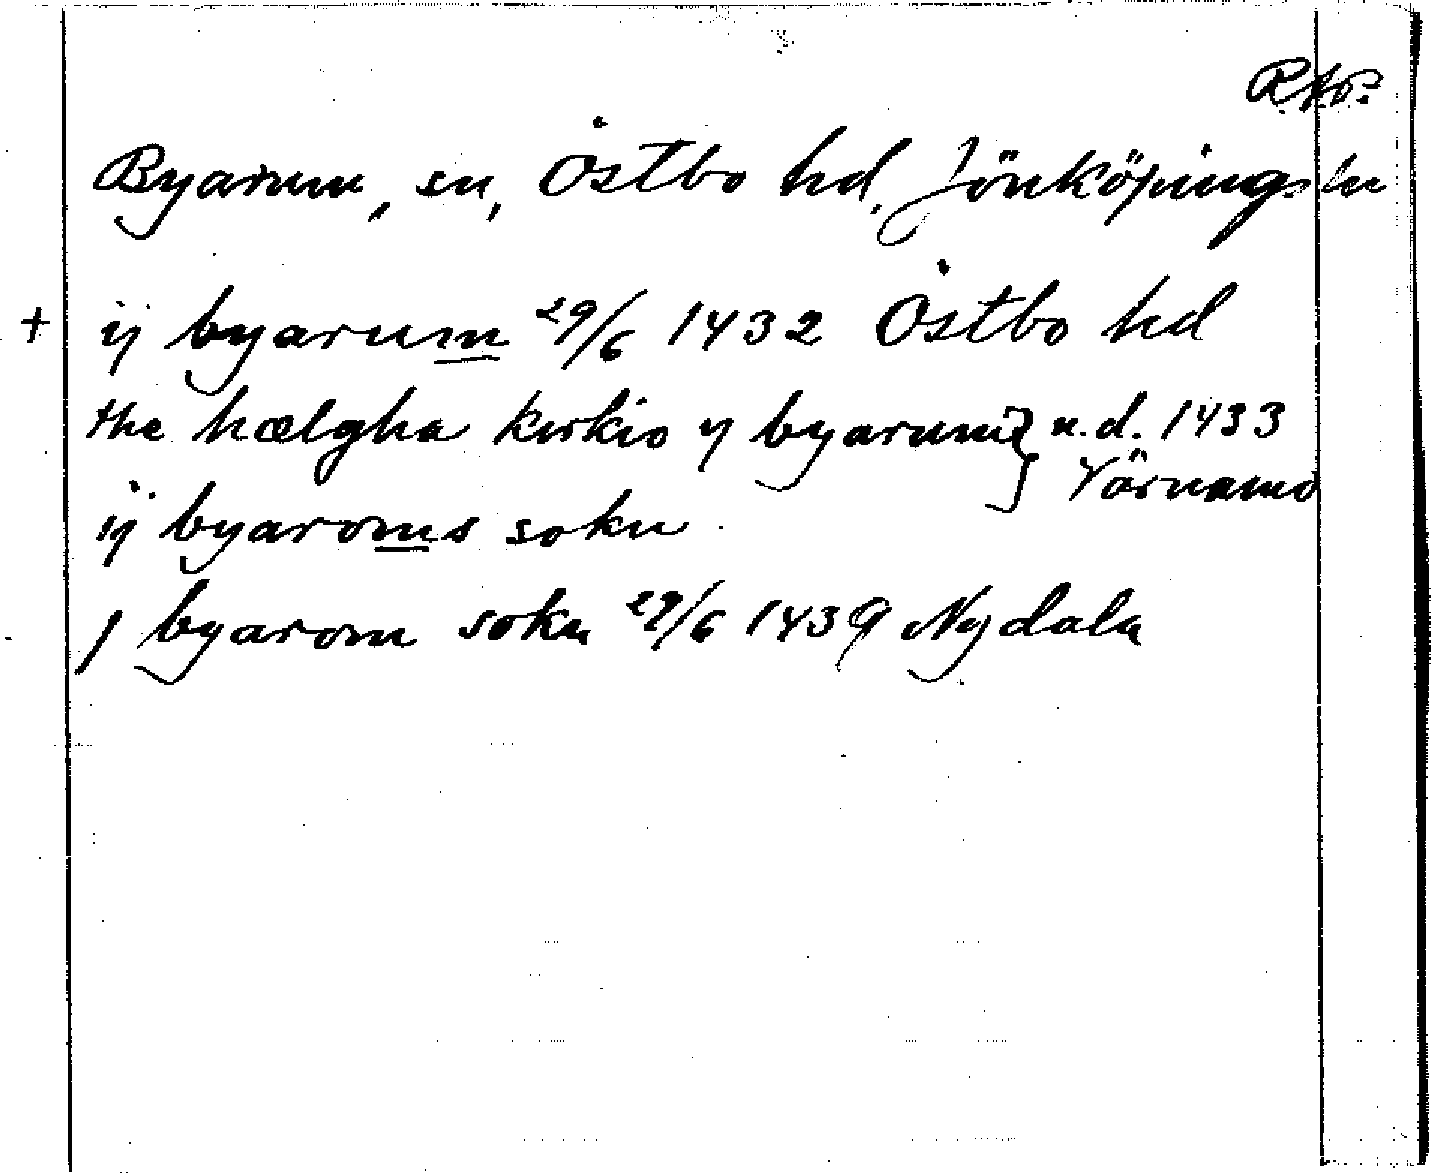 RAp.
Byarum, sn, Östbo hd, Jönköpings län
+ ij byarum 29/6 1432 Östbo hd
the hælgha kirkio y byarum } u.d. 1433
Värnamo
ij byaroms sokn
j byarom sokn 29/6 1439 Nydala